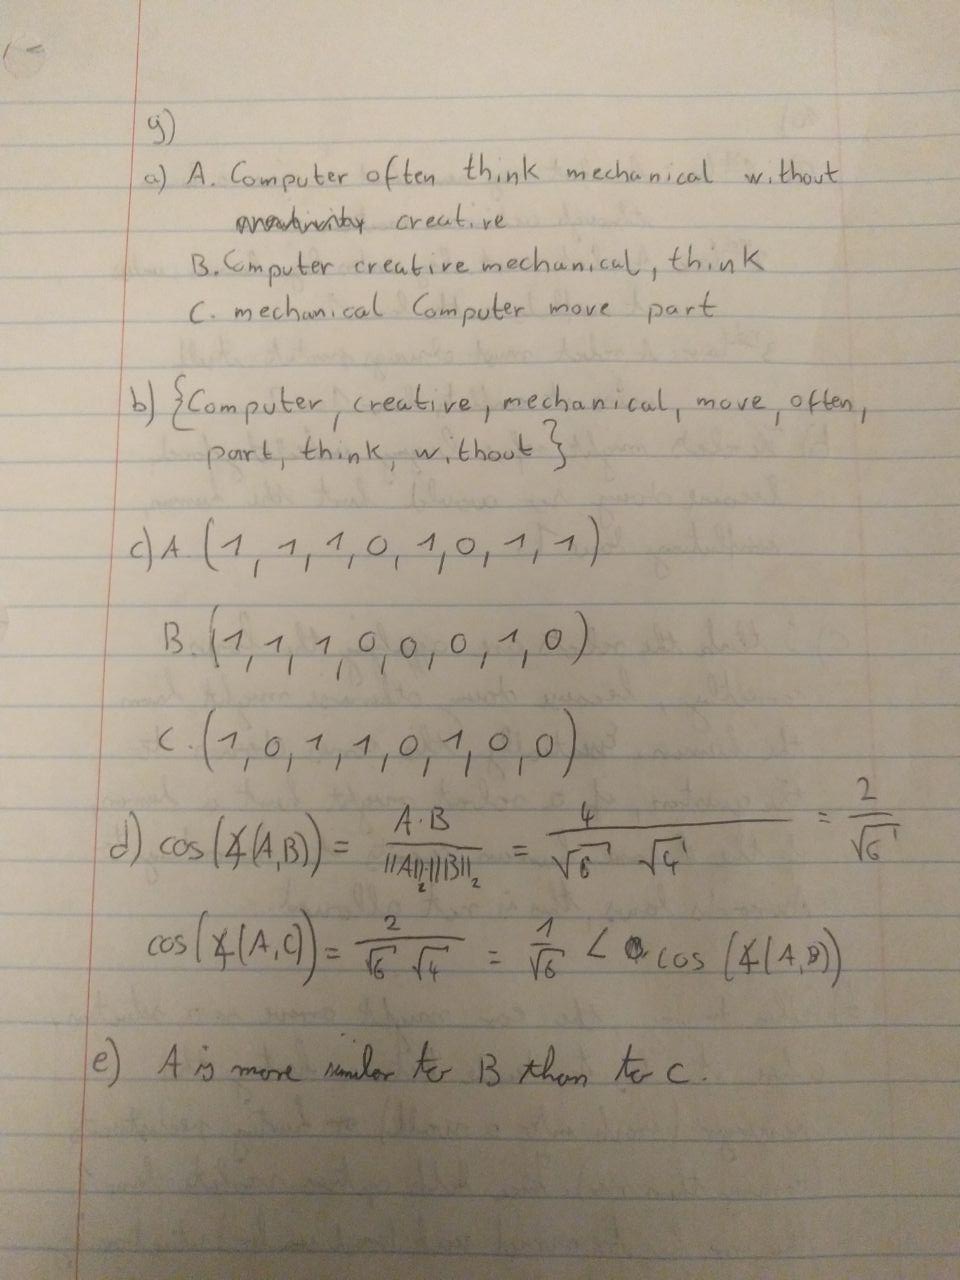 g)
a) A. Computer often think mechanical without
creative
B. Computer creative mechanical, think
C. mechanical Computer move part
b) {Computer, creative, mechanical, move, often,
part, think, without}
c) A. (1, 1, 1, 0, 1, 0, 1, 1)
B. (1, 1, 1, 0, 0, 0, 1, 0)
C. (1, 0, 1, 1, 0, 1, 0, 0)
d) cos(∡(A,B)) = A·B / ||A||₂·||B||₂ = 4 / √6 √4 = 2 / √6
cos(∡(A,C)) = 2 / √6 √4 = 1 / √6 < cos(∡(A,B))
e) A is more similar to B than to C.